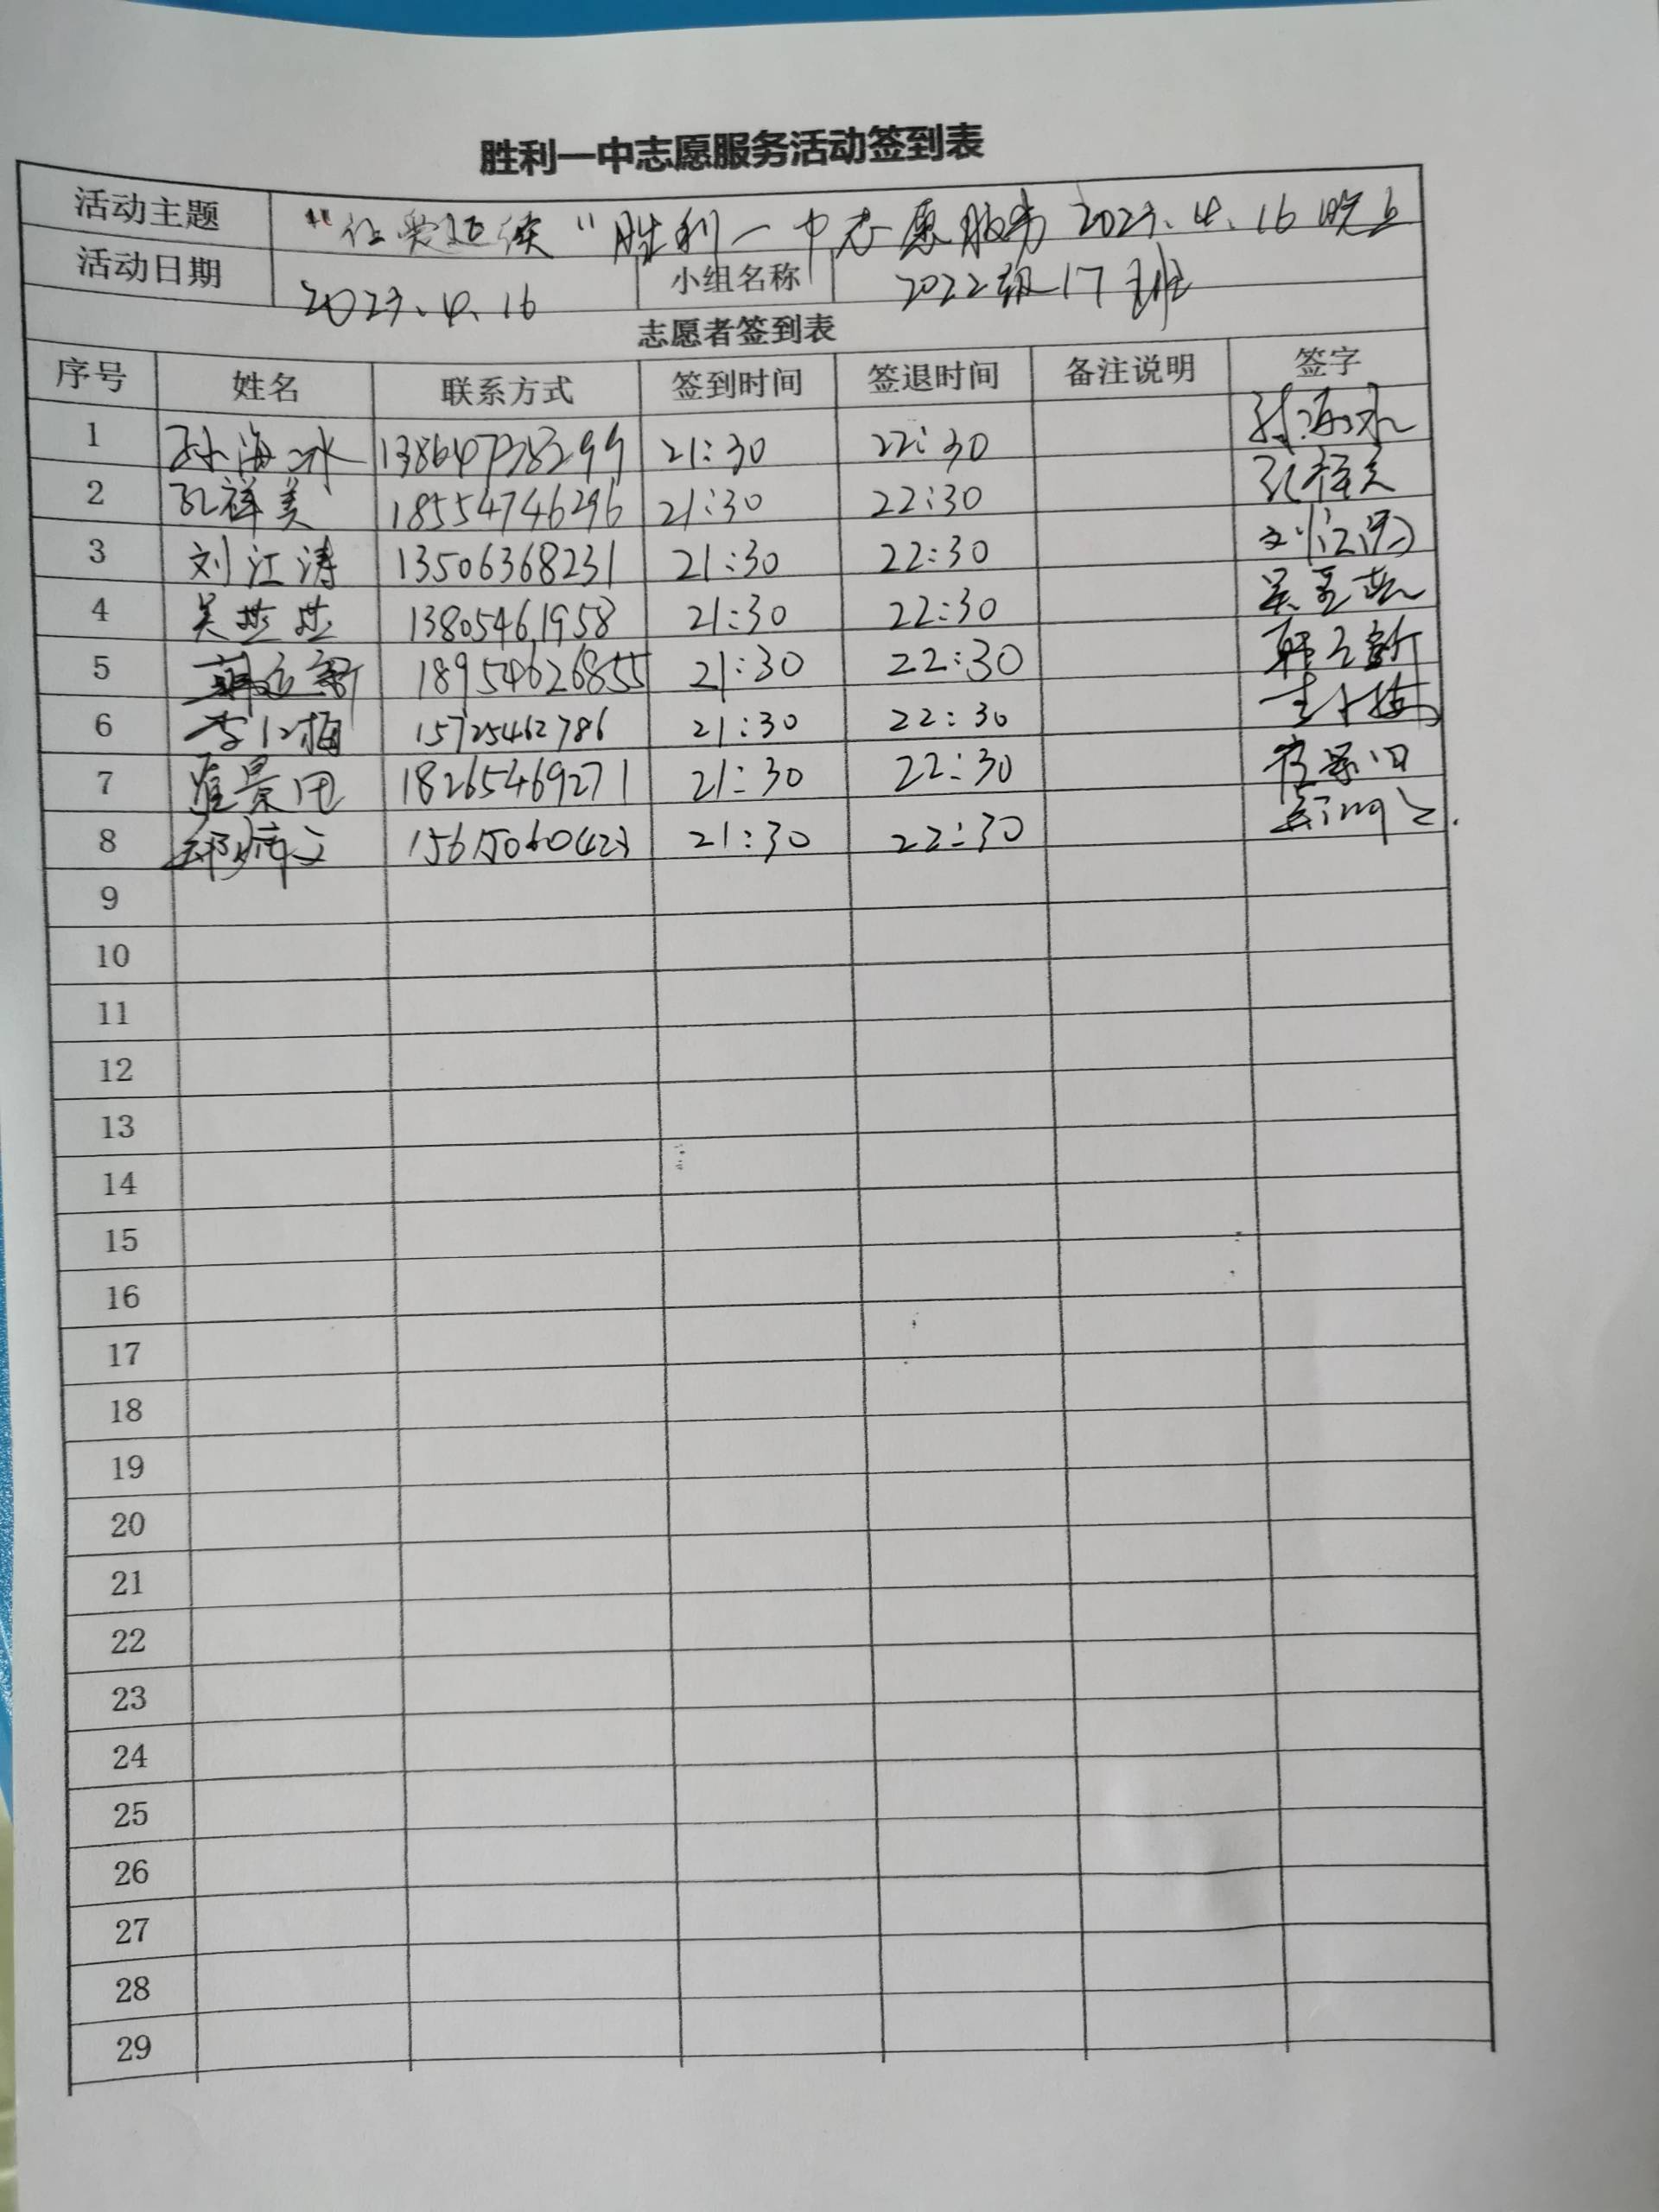 胜利一中志愿服务活动签到表
活动主题 "让爱延续"胜利一中志愿服务 2023.4.16 晚上
活动日期 2023.4.16 小组名称 2022级17班
志愿者签到表
序号 姓名 联系方式 签到时间 签退时间 备注说明 签字
1 孙海冰 21:30 22:30 孙海冰
2 孔祥美 18554746296 21:30 22:30 孔祥美
3 刘江涛 13506368231 21:30 22:30 刘江涛
4 吴燕燕 13805461958 21:30 22:30 吴燕燕
5 韩立新 18954626855 21:30 22:30 韩立新
6 李小梅 15725462786 21:30 22:30 李小梅
7 崔景田 18265469271 21:30 22:30 崔景田
8 21:30 22:30
9
10
11
12
13
14
15
16
17
18
19
20
21
22
23
24
25
26
27
28
29